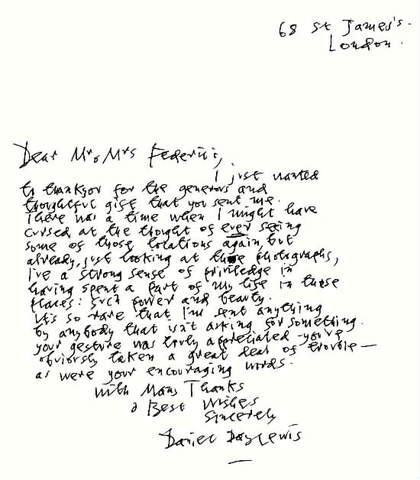 68 St James's.
London.
Dear Mr & Mrs Federici,
I just wanted
to thankyou for the generous and
thoughtful gift that you sent me.
There was a time when I might have
cursed at the thought of ever seeing
some of those locations again, but
already, just looking at those photographs,
I've a strong sense of priviledge in
having spent a part of my life in those
places: such power and beauty.
It's so rare that I'm sent anything
by anybody that isn't asking for something.
your gesture was truly appreciated – you've
obviously taken a great deal of trouble —
as were your encouraging words.
With Many Thanks
& Best Wishes
Sincerely
Daniel Day Lewis